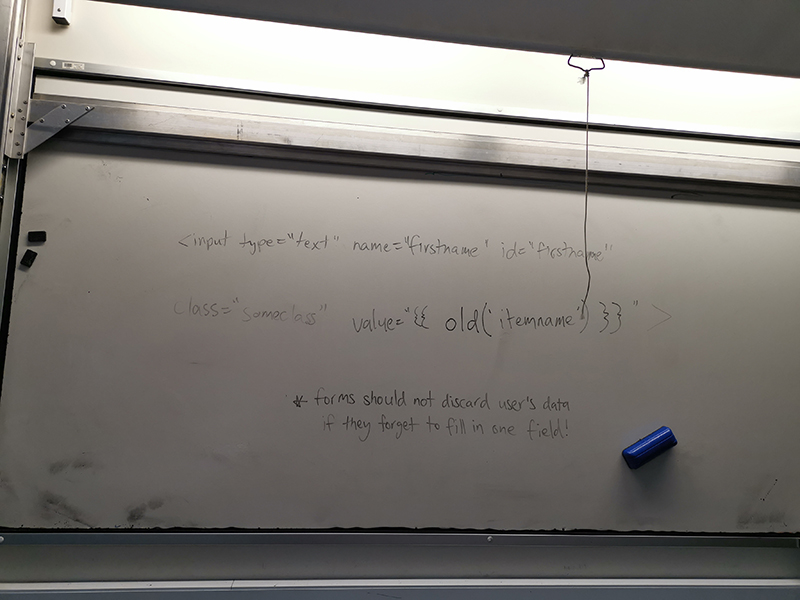 <input type="text" name="firstname" id="firstname"
class="someclass" value="{{ old('itemname') }}" >
* forms should not discard user's data
if they forget to fill in one field!